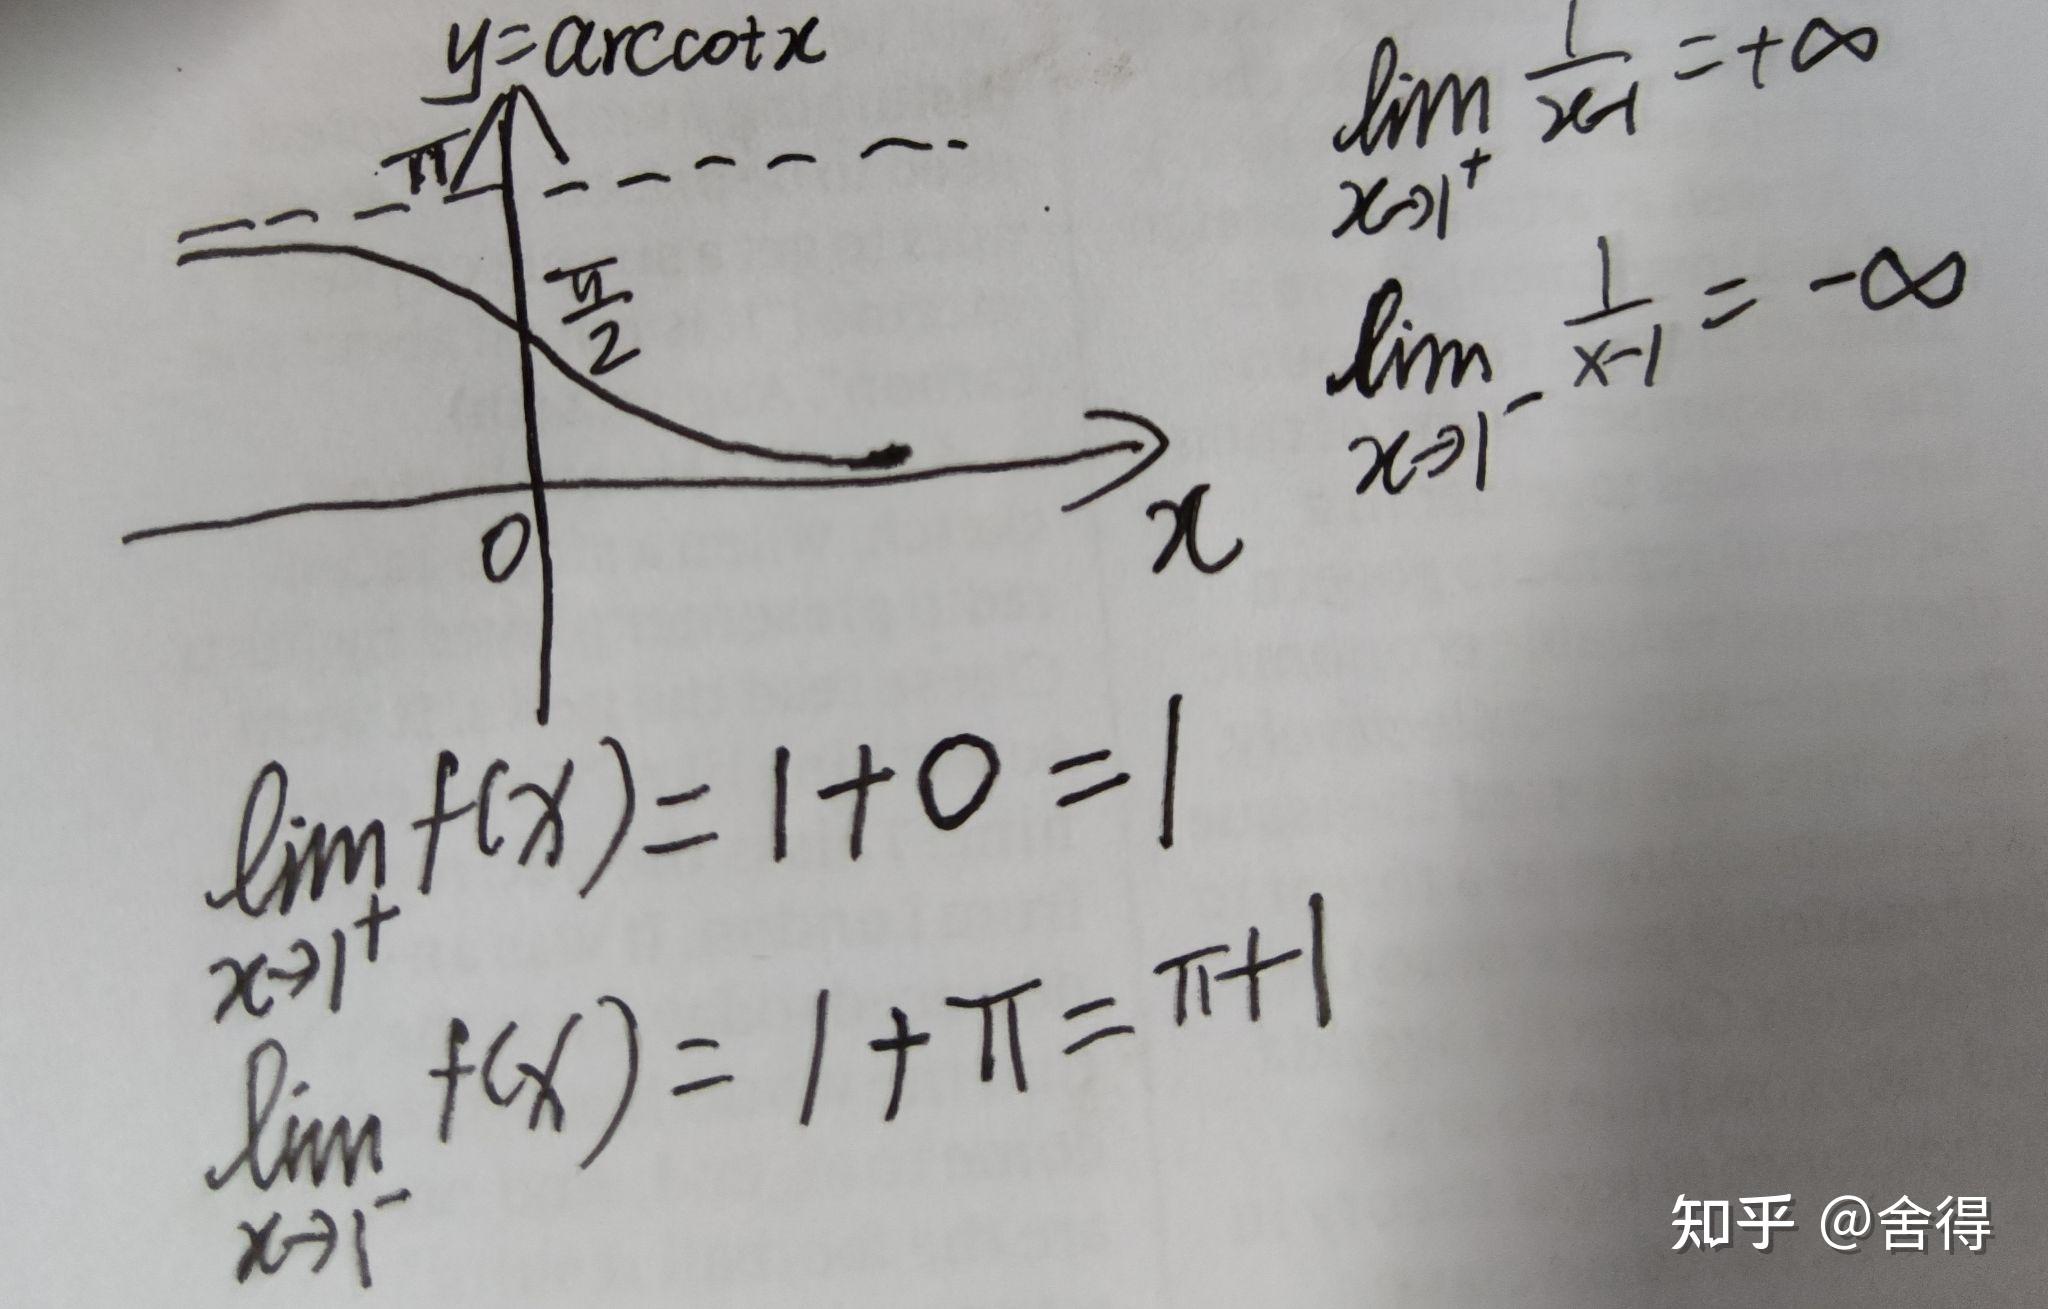 y=arccotx
π
π/2
0
x
lim x→1⁺ 1/(x-1) = +∞
lim x→1⁻ 1/(x-1) = -∞
lim x→1⁺ f(x) = 1+0 = 1
lim x→1⁻ f(x) = 1+π = π+1
知乎 @舍得